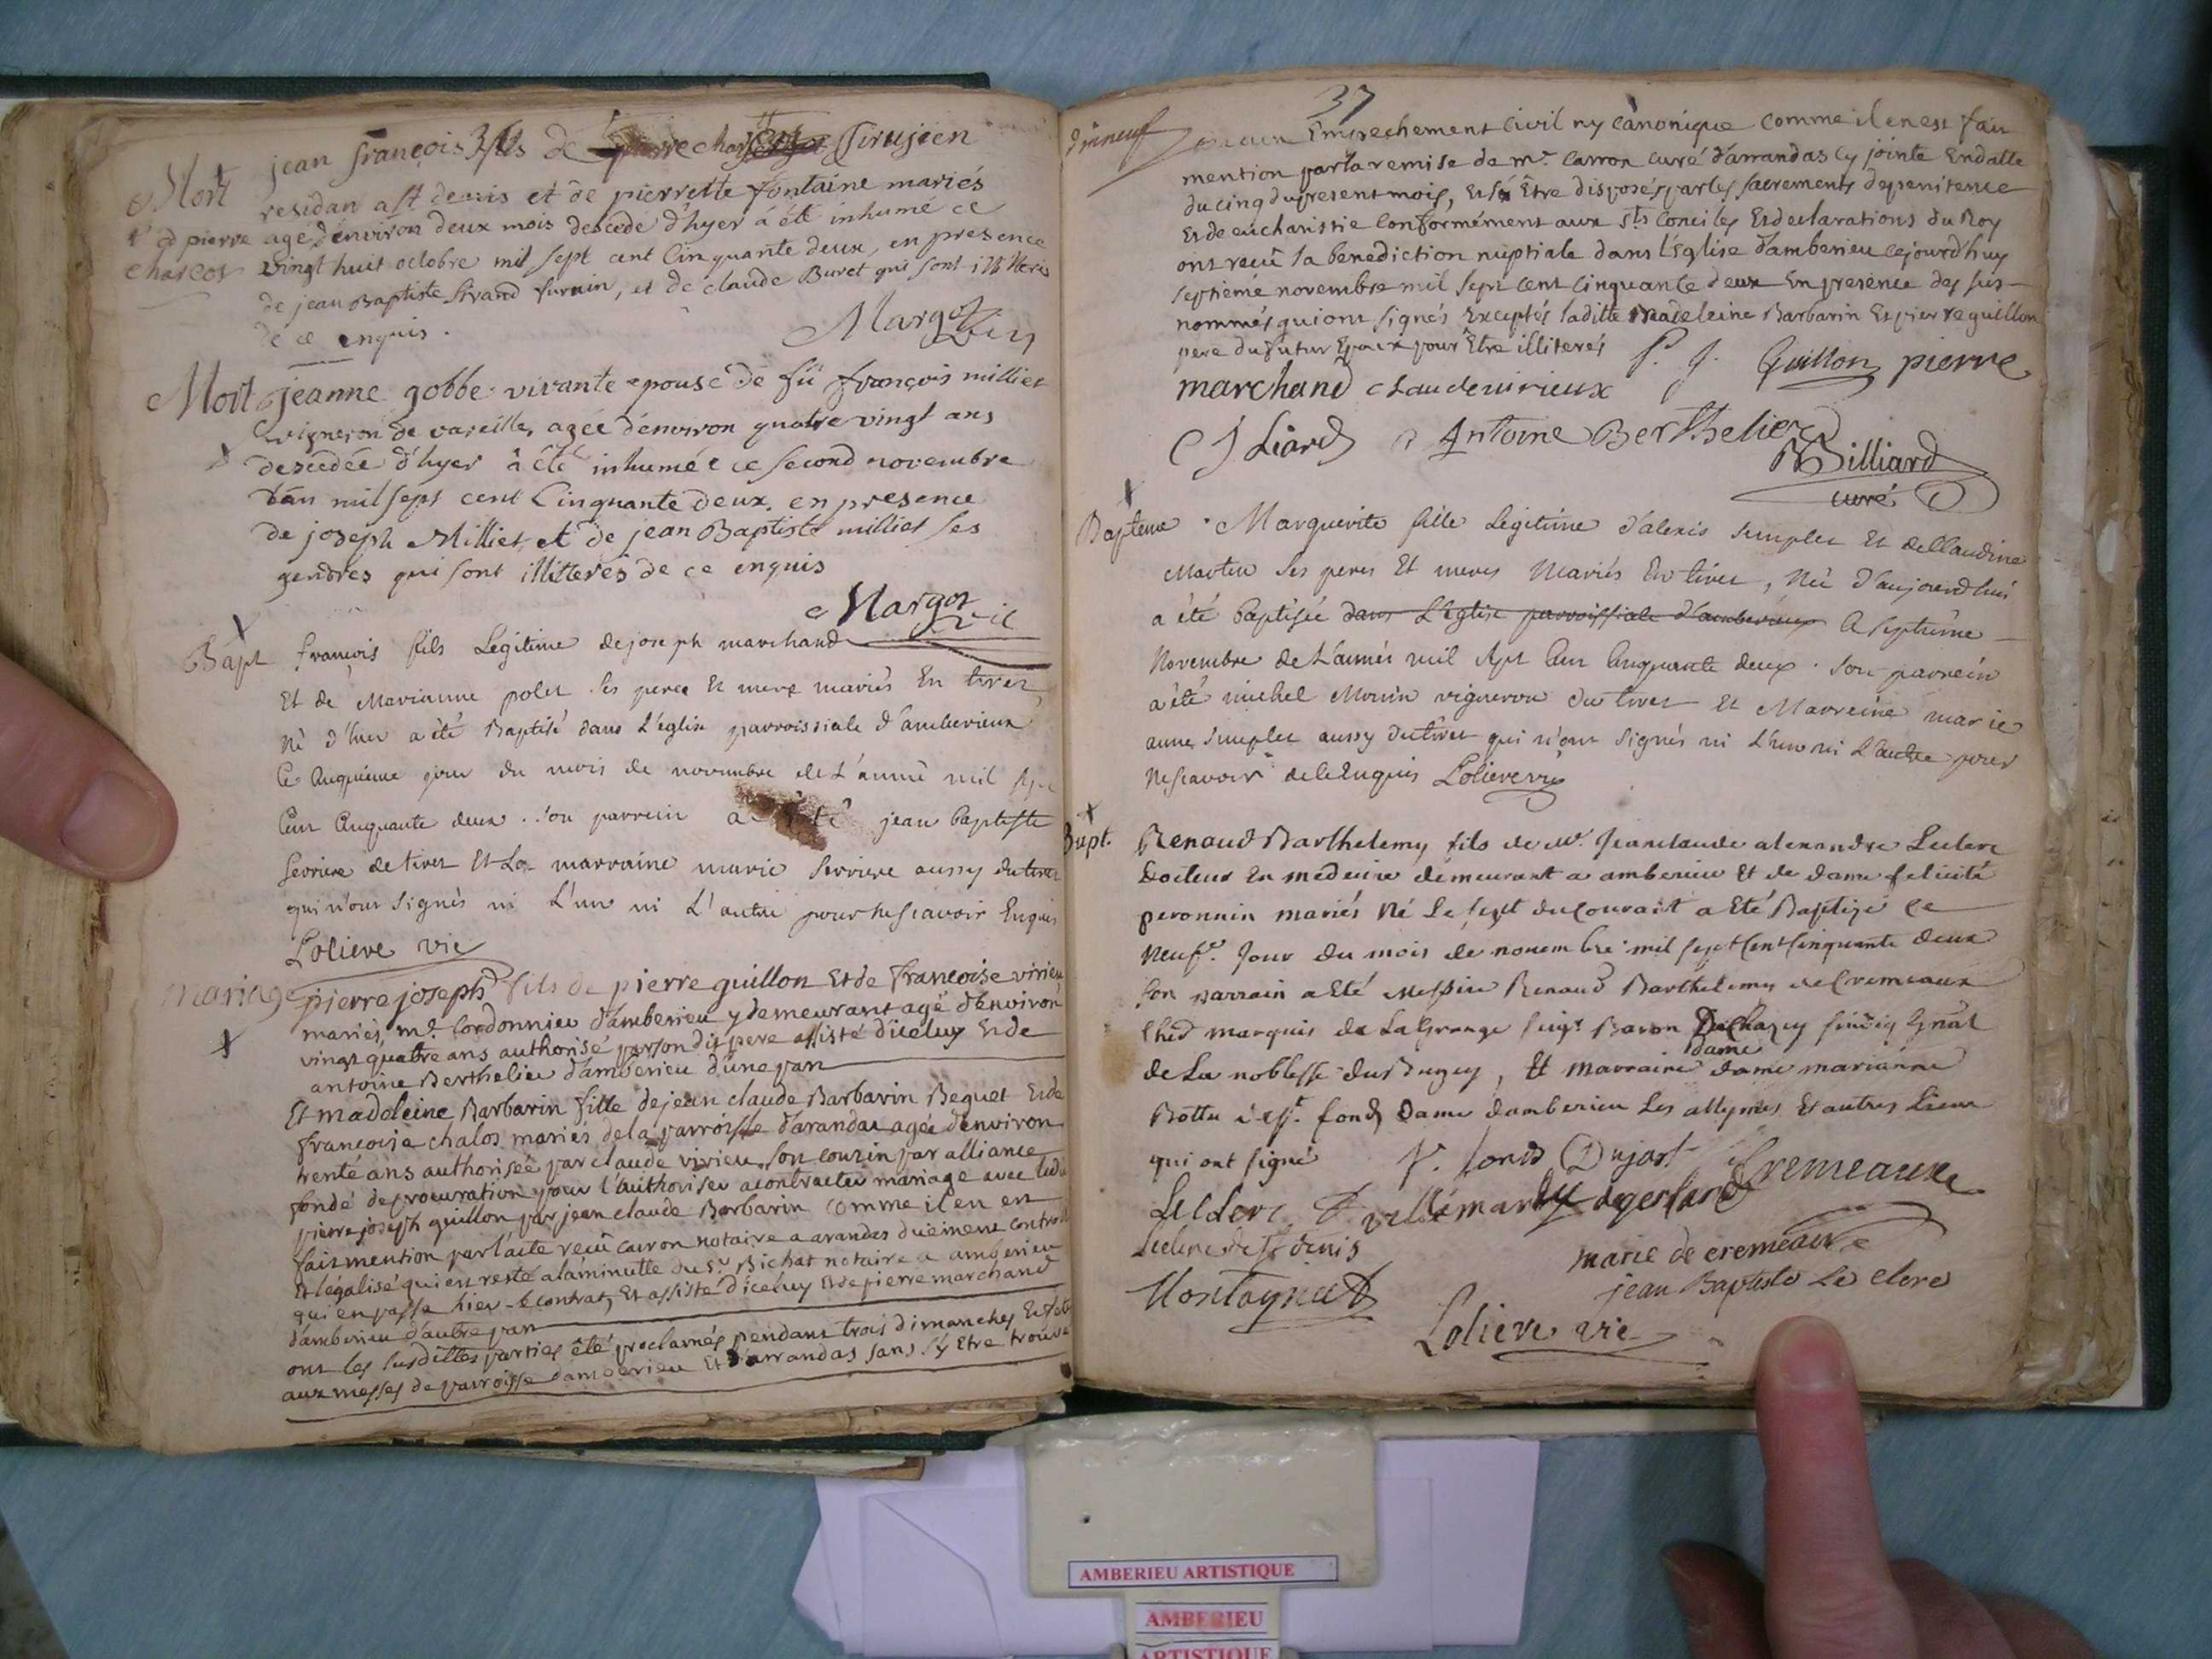 Mort jean françois fils de pierre charcot Cirusien
residan a st denis et de pierrette fontaine mariés
agé d'environ deux mois decedé d'hyer a été inhumé ce
pierre charcot
vingt huit octobre mil sept cent Cinquante deux, en presence
de jean Baptiste Sirand, et de claude Buret qui sont illiteres
de ce enquis.
Margot vic
Mort jeanne gobbe vivante epouse de fû françois milliet
vigneron de vareille, agée d'environ quatre vingt ans
decedée d'hyer a été inhumée ce second novembre
l'an mil sept cent Cinquante deux, en presence
de joseph Milliet, et de jean Baptiste milliet ses
gendres qui sont illitterés de ce enquis
Margot vic
x
Bapt francois fils Legitime de joseph marchand
Et de Marianne polet ses pere et mere mariés En tiret
Né d'hier a été Baptisé dans L'eglise parroissiale d'amberieux
Ce Cinquieme jour du mois de novembre de L'année mil sept
Cent Cinquante deux. son parrein a été jean baptiste
serriere de tiret Et La marraine marie serriere aussy du tiret
qui n'ont signés ni L'un ni L'autre pour ne scavoir Enquis
Loliere vic
mariage pierre joseph fils de pierre guillon Et de francoise virieu
x
mariés, me. Cordonnier d'amberieu y demeurant agé d'Environ
vingt quatre ans authorisé par son dit pere assisté diceluy Et de
antoine Berthelier d'amberieu d'une part
Et madeleine Barbarin fille de jean claude Barbarin Beguet Et de
francoise chalos mariés de la parroisse d'arandas agée d'environ
trente ans authorisée par claude virieu son couzin par alliance
fondé de procuration pour l'authoriser a contracter mariage avec ledit
pierre joseph guillon par jean claude Barbarin comme il en est
fait mention par l'acte recû carron notaire a arandas duëment controllé
Et légalisé qui en resté a la minutte du Sr. Bichat notaire a amberieu
qui en passa hier le contrat, Et assisté d'iceluy Et de pierre marchand
d'amberieu d'autre part
ont les susdittes parties été proclamés pendant trois dimanches Et fetes
aux messes de parroisse d'amberieu Et d'arrandas sans s'y Etre trouvé
37
aucun Empechement civil ny canonique comme il en est fait
mention par la remise de mr. carron curé d'arrandas cy jointe En datte
du cinq du present mois, Et s'Être disposés par les sacrements de penitence
Et de eucharistie Conformément aux Sts Conciles Et declarations du Roy
ont recû la benediction nuptiale dans l'Eglise d'amberieu cejourd'huy
septieme novembre mil sept cent cinquante deux En presence des sus
nommés qui ont signés Exceptés laditte Madeleine Barbarin Et pierre guillon
pere du futur Epoux pour Être illiterés P. J. Guillon pierre
marchand claude virieux
C J Liard Antoine Berthelier
Billiard
curé
x
Bapteme Marguerite fille Legitime d'alexis Simplet Et de Claudine
Martin ses peres Et meres Mariés En tiret, Née d'aujourd'hui
a été baptisée dans L'Eglise parroissiale d'amberieux Ce septieme
Novembre de L'année mil sept Cent Cinquante deux. son parrein
a été michel Monin vigneron du tiret Et Marreine marie
anne Simplet aussy du tiret qui n'ont signés ni L'un ni L'autre pour
Ne scavoir de ce Enquis Loliere vic
x
Bapt. Renaud Barthelemy fils de mr. Jean claude alexandre Leclerc
Docteur En medecine demeurant a amberieu Et de dame felicité
peronnin mariés Né Le sept du Courant a Eté Baptizé ce
Neufe. Jour du mois de novembre mil sept Cent Cinquante deux
son parrain a Eté Messire Renaud Barthelemy de Cremeaux
Cher marquis de La Grange seigr. Baron De Chazey sindig Gnâl
de La noblesse du Bugey, Et marraine dame marianne
dame
Bottu de st. fond dame d'amberieu Les allymes Et autres Lieux
qui ont signé V. fonds Dujast Cremeaux
LeClerc villemanly degerland
Leclerc de St denis
marie de cremeaux
Montagnat
jean Baptiste Le clerc
Loliere vic
AMBERIEU ARTISTIQUE
AMBERIEU
ARTISTIQUE